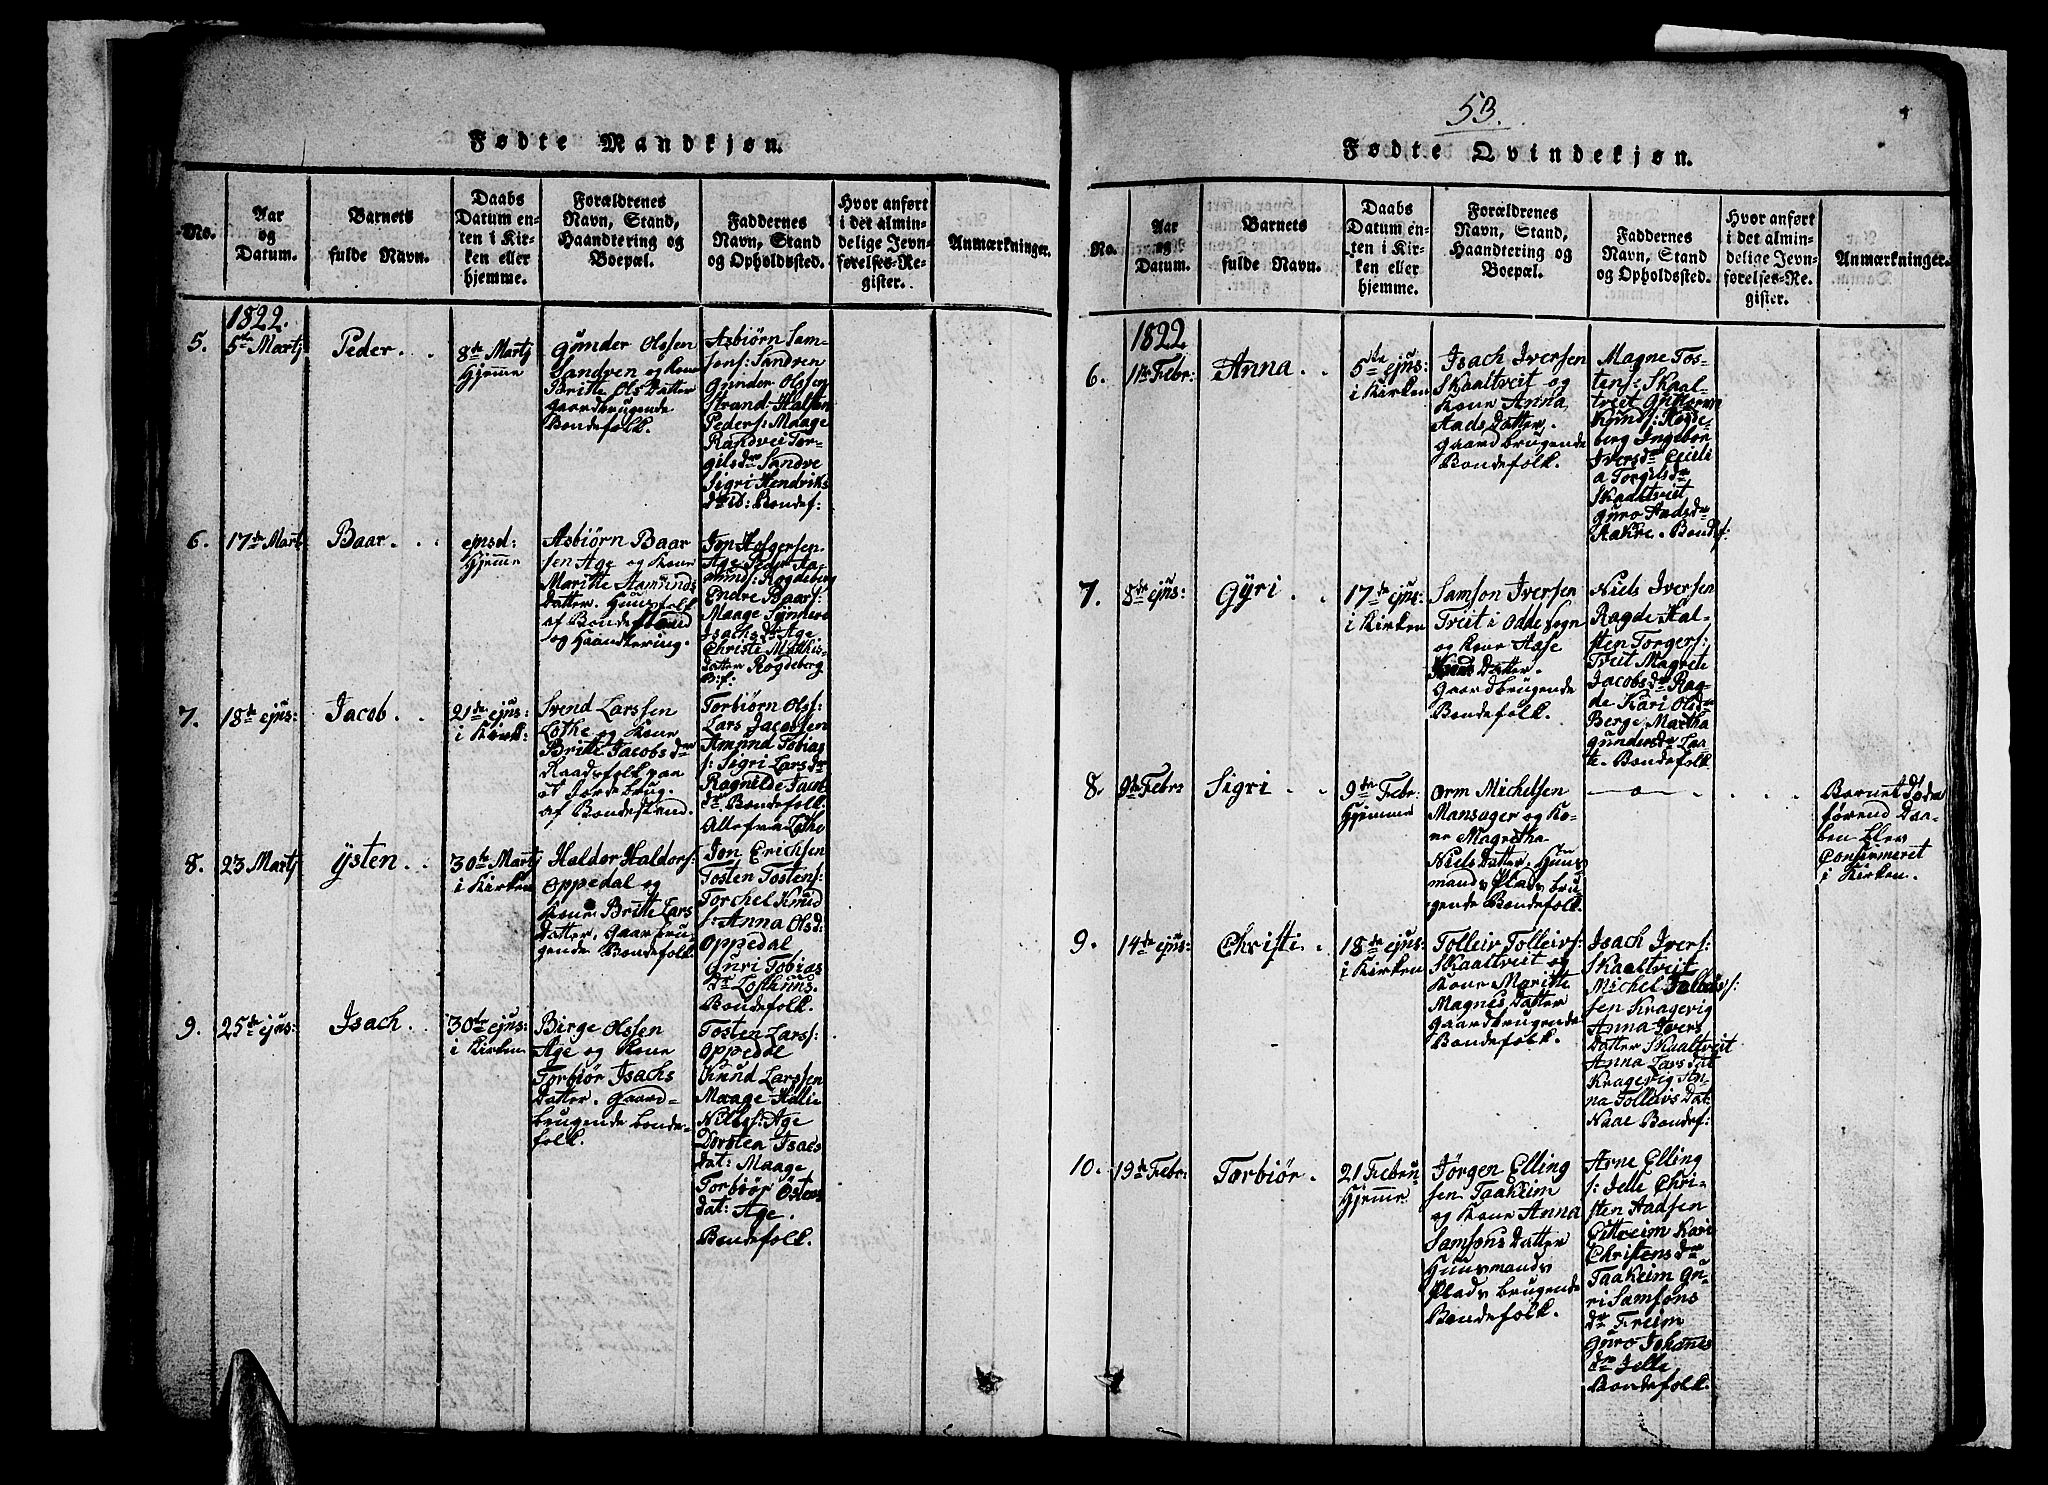 53.
Fødte Mandkjøn.
No.
Aar
og
Datum.
Barnets
fulde Navn.
Daabs
Datum en-
ten i Kir-
ken eller
hjemme.
Forældrenes
Navn, Stand,
Haandtering og
Boepæl.
Faddernes
Navn, Stand
og Opholdssted.
Hvor anført
i det almin-
delige Jevn-
førelses-Re-
gister.
Anmærkninger.
1822.
5.
5te Martj
Peder.
8de Martj
Hjemme
Gunder Olssen
Sandven og Kone
Britte Ols Datter
Gaardbrugende
Bondefolk.
Asbiørn Sam-
sens: Sandven
Gunder Olssen
Strand Halsten
Peders: Maage
Randvei Tor-
gilsdr Sandve
Sigri Hendriks
dr id: Bondef:
6.
17de Martj
Baar.
ejusd:
Hjemme
Asbiørn Baar
sen Age og Kone
Maritte Aamunds
Datter. Huusfolk
af Bondestand
og Haandtering.
Jon Holgersen
Age Peder Aa-
munds: Rogdeberg
Endre Baars:
Maage Synneve
Isachsdr Age
Christi Mathis-
datter Rogdeberg
B:f:
7.
18de ejus:
Jacob.
21de ejus:
i Kirk:
Svend Larssen
Lothe og Kone
Britte Jacobsdr
Raadsfolk paa
et Jordebrug.
af Bondestand.
Torbiørn Ols:
Lars Jacobsen
Amund Tobias
s: Sigri Larsdr
Ragnilde
dr Bondefolk
Alle fra Lothe
8.
23 Martj
Ysten
30te Martj
i Kirken
Haldor Haldors:
Oppedal og
Kone Britte Lars
Datter. Gaardbru-
gende Bondefolk.
Jon Ericksen
Tosten Tostens:
Torchel Knud
s: Anna Olsd:
Oppedal
Guri Tobias
dr Lothuns.
Bondefolk.
9.
25de ejus:
Isach.
30te ejus:
i Kirken
Birge Olssen
Age og Kone
Torbiør Isachs
Datter. Gaard-
brugende bonde-
folk.
Tosten Lars:
Oppedal
Knud Larssen
Maage Hallie
Niels: Age
Torsten Isacs
dat: Maage
Torbiør Østens
dat: Age.
Bondefolk.
Fødte Qvindekjøn.
No.
Aar
og
Datum.
Barnets
fulde Navn.
Daabs
Datum en-
ten i Kir-
ken eller
hjemme.
Forældrenes
Navn, Stand,
Haandtering og
Boepæl.
Faddernes
Navn, Stand
og Opholdssted.
Hvor anført
i det almin-
delige Jevn-
førelses-Re-
gister.
Anmærkninger.
1822
6.
1te Febr:
Anna
5te ejus:
i Kirken
Isach Iversen
Skaaltveit og
Kone Anna
Aads Datter.
Gaardbrugende
Bondefolk.
Magne Tos-
tens: Skaal-
tveit Guttorm
Knuds: Rogde-
berg Ingebor
Iversdr Cicili
a Torgilsdr
Skaaltveit
Guro Aadsdr
Aakre. Bondef:
7.
8de ejus:
Gyri
17de ejus:
i Kirken
Samson Iversen
Tveit i Odde Sogn
og Kone Aase
Datter.
Gaardbrugende
Bondefolk.
Niels Iversen
Ragde Hal-
sten Torgers:
Tveit Magrete
Jacobsdr Rag-
de Kari Olsdr
Berge Martha
Gundersdr Laa-
te. Bondefolk
8.
9de Febr:
Sigri
9de Febr:
Hjemme
Orm Michelsen
Mansager og Ko-
ne Magretha
Niels Datter. Huus
mands Plads bru-
gende Bondefolk.
—o—
Barnet døde
førend Daa-
ben blev
Confirmeret
i Kirken.
9.
14de ejus:
Christi
18de ejus:
i Kirken
Tolleiv Tolleivs:
Skaaltveit og
Kone Maritte
Magnes Datter
Gaardbrugende
Bondefolk.
Isach Ivers:
Skaaltveit
Michel Tolleivs:
sen Kragevig
Anna Ivers
Datter Skaaltveit
Anna Larsdat
Kragevig An-
na Tolleivs Dat:
Naae Bondef:
10.
19de Febr:
Torbiør.
21 Febru:
Hjemme
Jørgen Elling
sen Taakeim
og Kone Anna
Samsons Datter
Huusmands
Plads brugende
Bondefolk.
Arne Elling
s: Jelle Chri-
sten Aadsen
Eittreim Kari
Christensdr
Taakeim Gu-
ri Samsons
dr Freim
Guro Johannes
dr Jelle
Bondefolk.